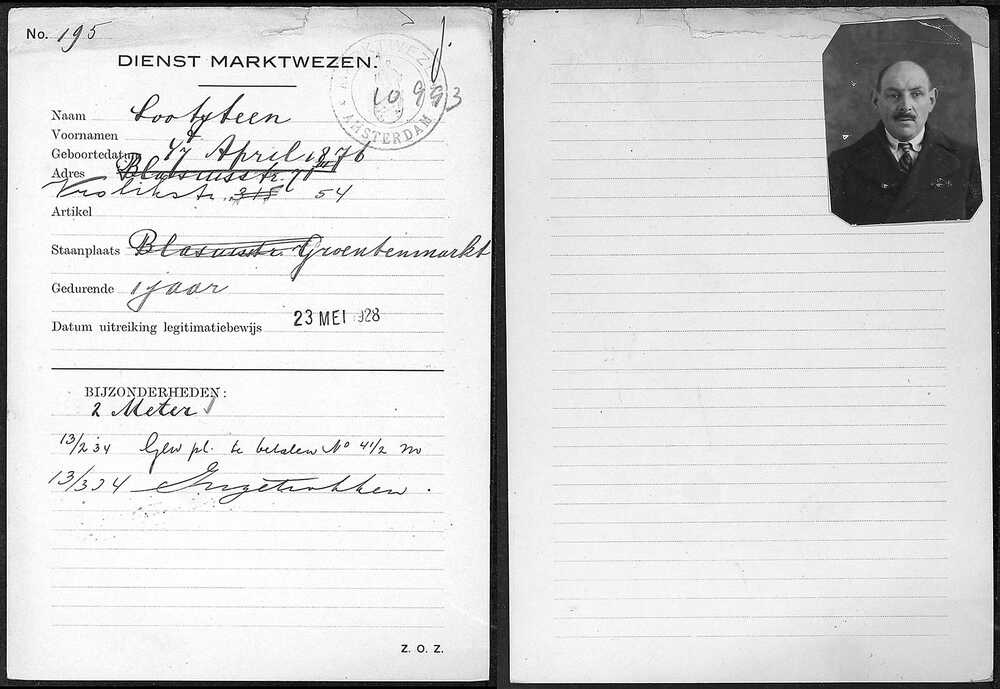 No. 195
DIENST MARKTWEZEN.
MARKTWEZEN AMSTERDAM
10993
Naam Lootsteen
Voornamen
Geboortedatum 17 April 1876
Adres Blasiusstr. 71
Vrolikstr. 318 54
Artikel
Staanplaats Blasiusstr. Groentenmarkt
Gedurende 1 jaar
Datum uitreiking legitimatiebewijs 23 MEI 1928
BIJZONDERHEDEN:
2 Meter
13/2 34 Gew pl. te betalen No 41/2 m
13/3 34 Ingetrokken.
Z. O. Z.